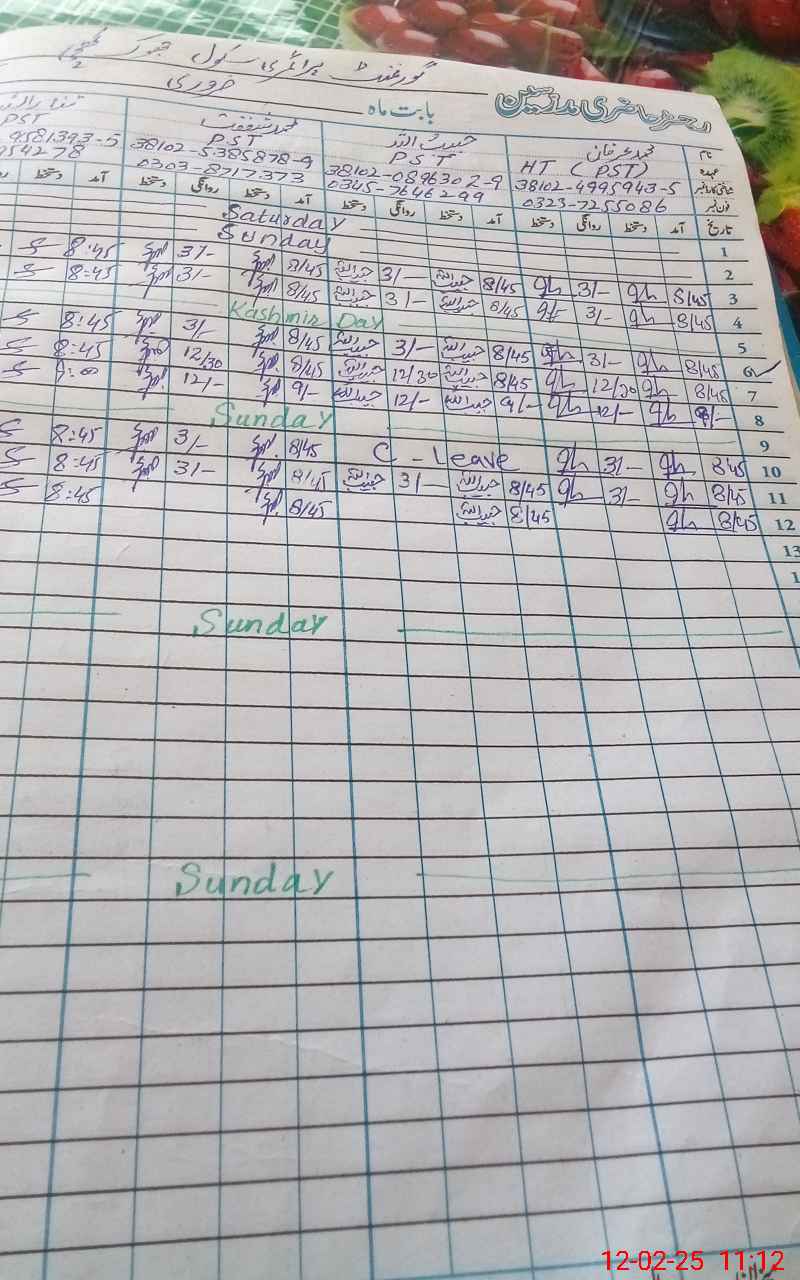 گورنمنٹ پرائمری سکول جھوک
رجسٹر حاضری مدرسین
بابت ماہ فروری
نام محمد عرفان حبیب اللہ محمد شفقت
عہدہ HT (PST) PST PST PST
شناختی کارڈ نمبر 38102-4995943-5 38102-0896302-9 38102-5385878-9 9581393-5
فون نمبر 0323-7255086 0345-7646299 0303-8717373 954278
تاریخ آمد دستخط روانگی دستخط آمد دستخط روانگی دستخط آمد دستخط روانگی دستخط آمد دستخط
1 Saturday
2 Sunday
3 8/45 3/- 8/45 حبیب اللہ 3/- حبیب اللہ 8/45 3/- 8:45
4 8/45 3/- 8/45 حبیب اللہ 3/- حبیب اللہ 8/45 3/- 8:45
5 Kashmir Day
6 8/45 3/- 8/45 حبیب اللہ 3/- حبیب اللہ 8/45 3/- 8:45
7 8/45 12/30 8/45 حبیب اللہ 12/30 حبیب اللہ 8/45 12/30 8:45
8 9/- 12/- 9/- حبیب اللہ 12/- حبیب اللہ 9/- 12/- 9:00
9 Sunday
10 8/45 3/- C-Leave 8/45 3/- 8:45
11 8/45 3/- 8/45 حبیب اللہ 3/- حبیب اللہ 8/45 3/- 8:45
12 8/45 8/45 حبیب اللہ 8/45 8:45
13
1
Sunday
Sunday
12-02-25 11:12